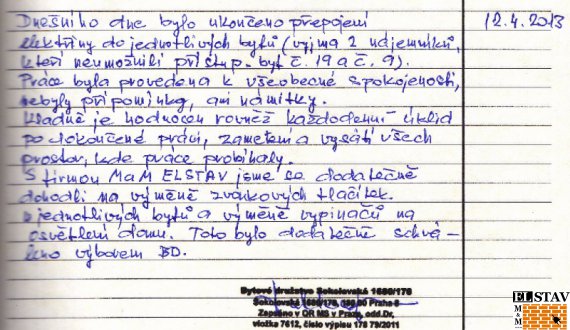 Dnešního dne bylo ukončeno přepojení
12.4.2013
elektřiny do jednotlivých bytů (vyjma 2 nájemníků,
kteří neumožnili přístup. byt č. 19 a č. 9).
Práce byla provedena k všeobecné spokojenosti,
nebyly připomínky, ani námitky.
Kladně je hodnocen rovněž každodenní úklid
po dokončené práci, zametení a vysátí všech
prostor, kde práce probíhaly.
S firmou MaM ELSTAV jsme se dodatečně
dohodli na výměně zvonkových tlačítek
jednotlivých bytů a výměně vypínačů na
osvětlení domu. Toto bylo dodatečně schvá-
leno výborem BD.
Bytové družstvo Sokolovská 1680/176
Sokolovská 1680/176, 180 00 Praha 8
Zapsáno v OR MS v Praze, odd.Dr,
vložka 7612, číslo výpisu 178 79/2011
ELSTAV
M&M